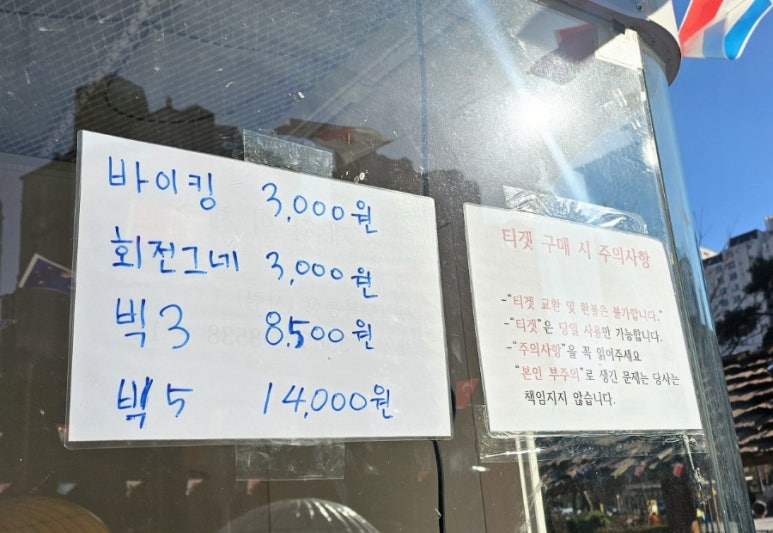 바이킹 3,000원
회전그네 3,000원
빅3 8,500원
빅5 14,000원
티켓 구매 시 주의사항
-"티켓 교환 및 환불은 불가합니다."
-"티켓"은 당일 사용만 가능합니다.
-"주의사항"을 꼭 읽어주세요
"본인 부주의"로 생긴 문제는 당사는
책임지지 않습니다.